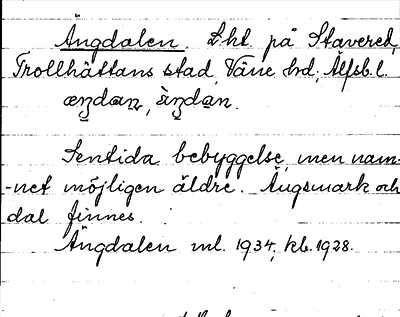 Ängdalen. Lht. på Stavered,
Trollhättans stad, Väne hd, Älfsb. l.
Sentida bebyggelse, men nam-
-net möjligen äldre. Ängsmark och
dal finnes.
Ängdalen ml. 1934, kb. 1928.